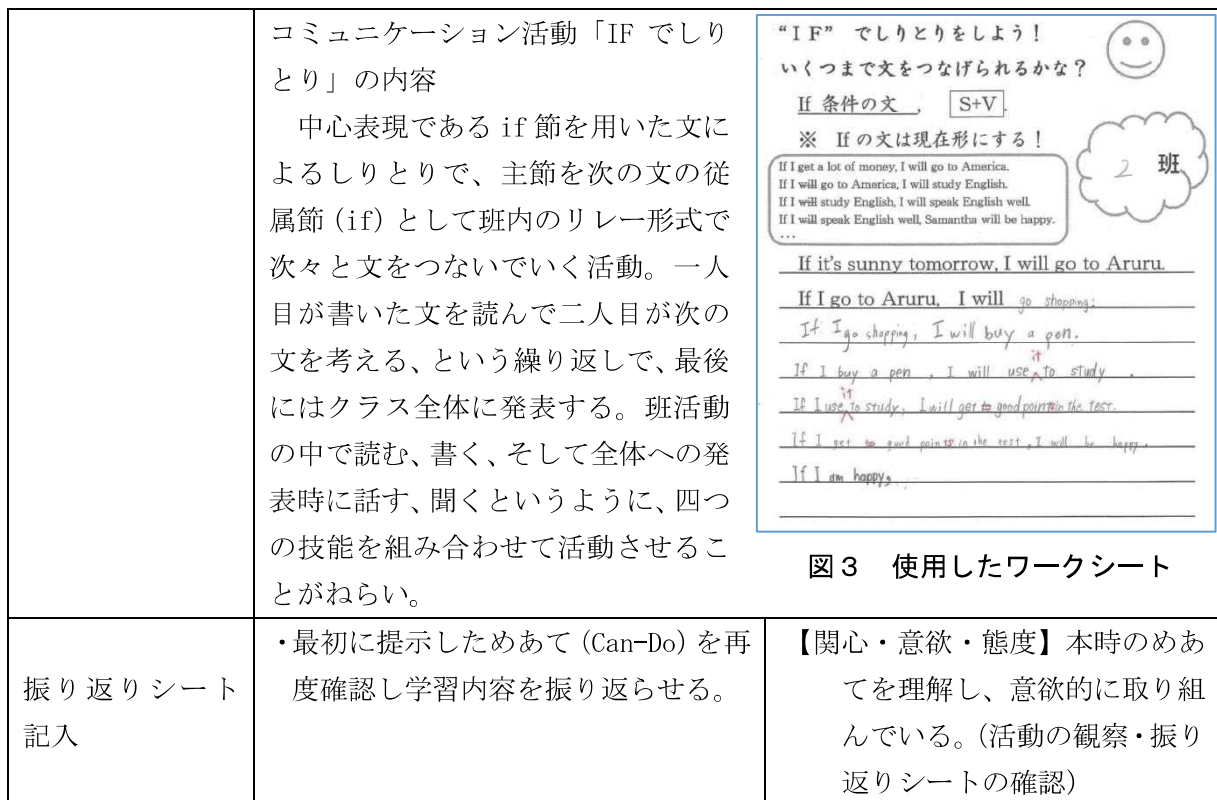 コミュニケーション活動「IF でしり
とり」の内容
中心表現である if 節を用いた文に
よるしりとりで、主節を次の文の従
属節(if)として班内のリレー形式で
次々と文をつないでいく活動。一人
目が書いた文を読んで二人目が次の
文を考える、という繰り返しで、最後
にはクラス全体に発表する。班活動
の中で読む、書く、そして全体への発
表時に話す、聞くというように、四つ
の技能を組み合わせて活動させるこ
とがねらい。
“IF” でしりとりをしよう！
いくつまで文をつなげられるかな？
If 条件の文 , S+V.
※ If の文は現在形にする！
2 班
If I get a lot of money, I will go to America.
If I will go to America, I will study English.
If I will study English, I will speak English well.
If I will speak English well, Samantha will be happy.
…
If it's sunny tomorrow, I will go to Aruru.
If I go to Aruru, I will go shopping.
If I go shopping, I will buy a pen.
If I buy a pen , I will use it to study .
If I use it to study, I will get to good points in the test.
If I get to good points in the test, I will be happy.
If I am happy,
図３ 使用したワークシート
振り返りシート
記入
・最初に提示しためあて(Can-Do)を再
度確認し学習内容を振り返らせる。
【関心・意欲・態度】本時のめあ
てを理解し、意欲的に取り組
んでいる。(活動の観察・振り
返りシートの確認)